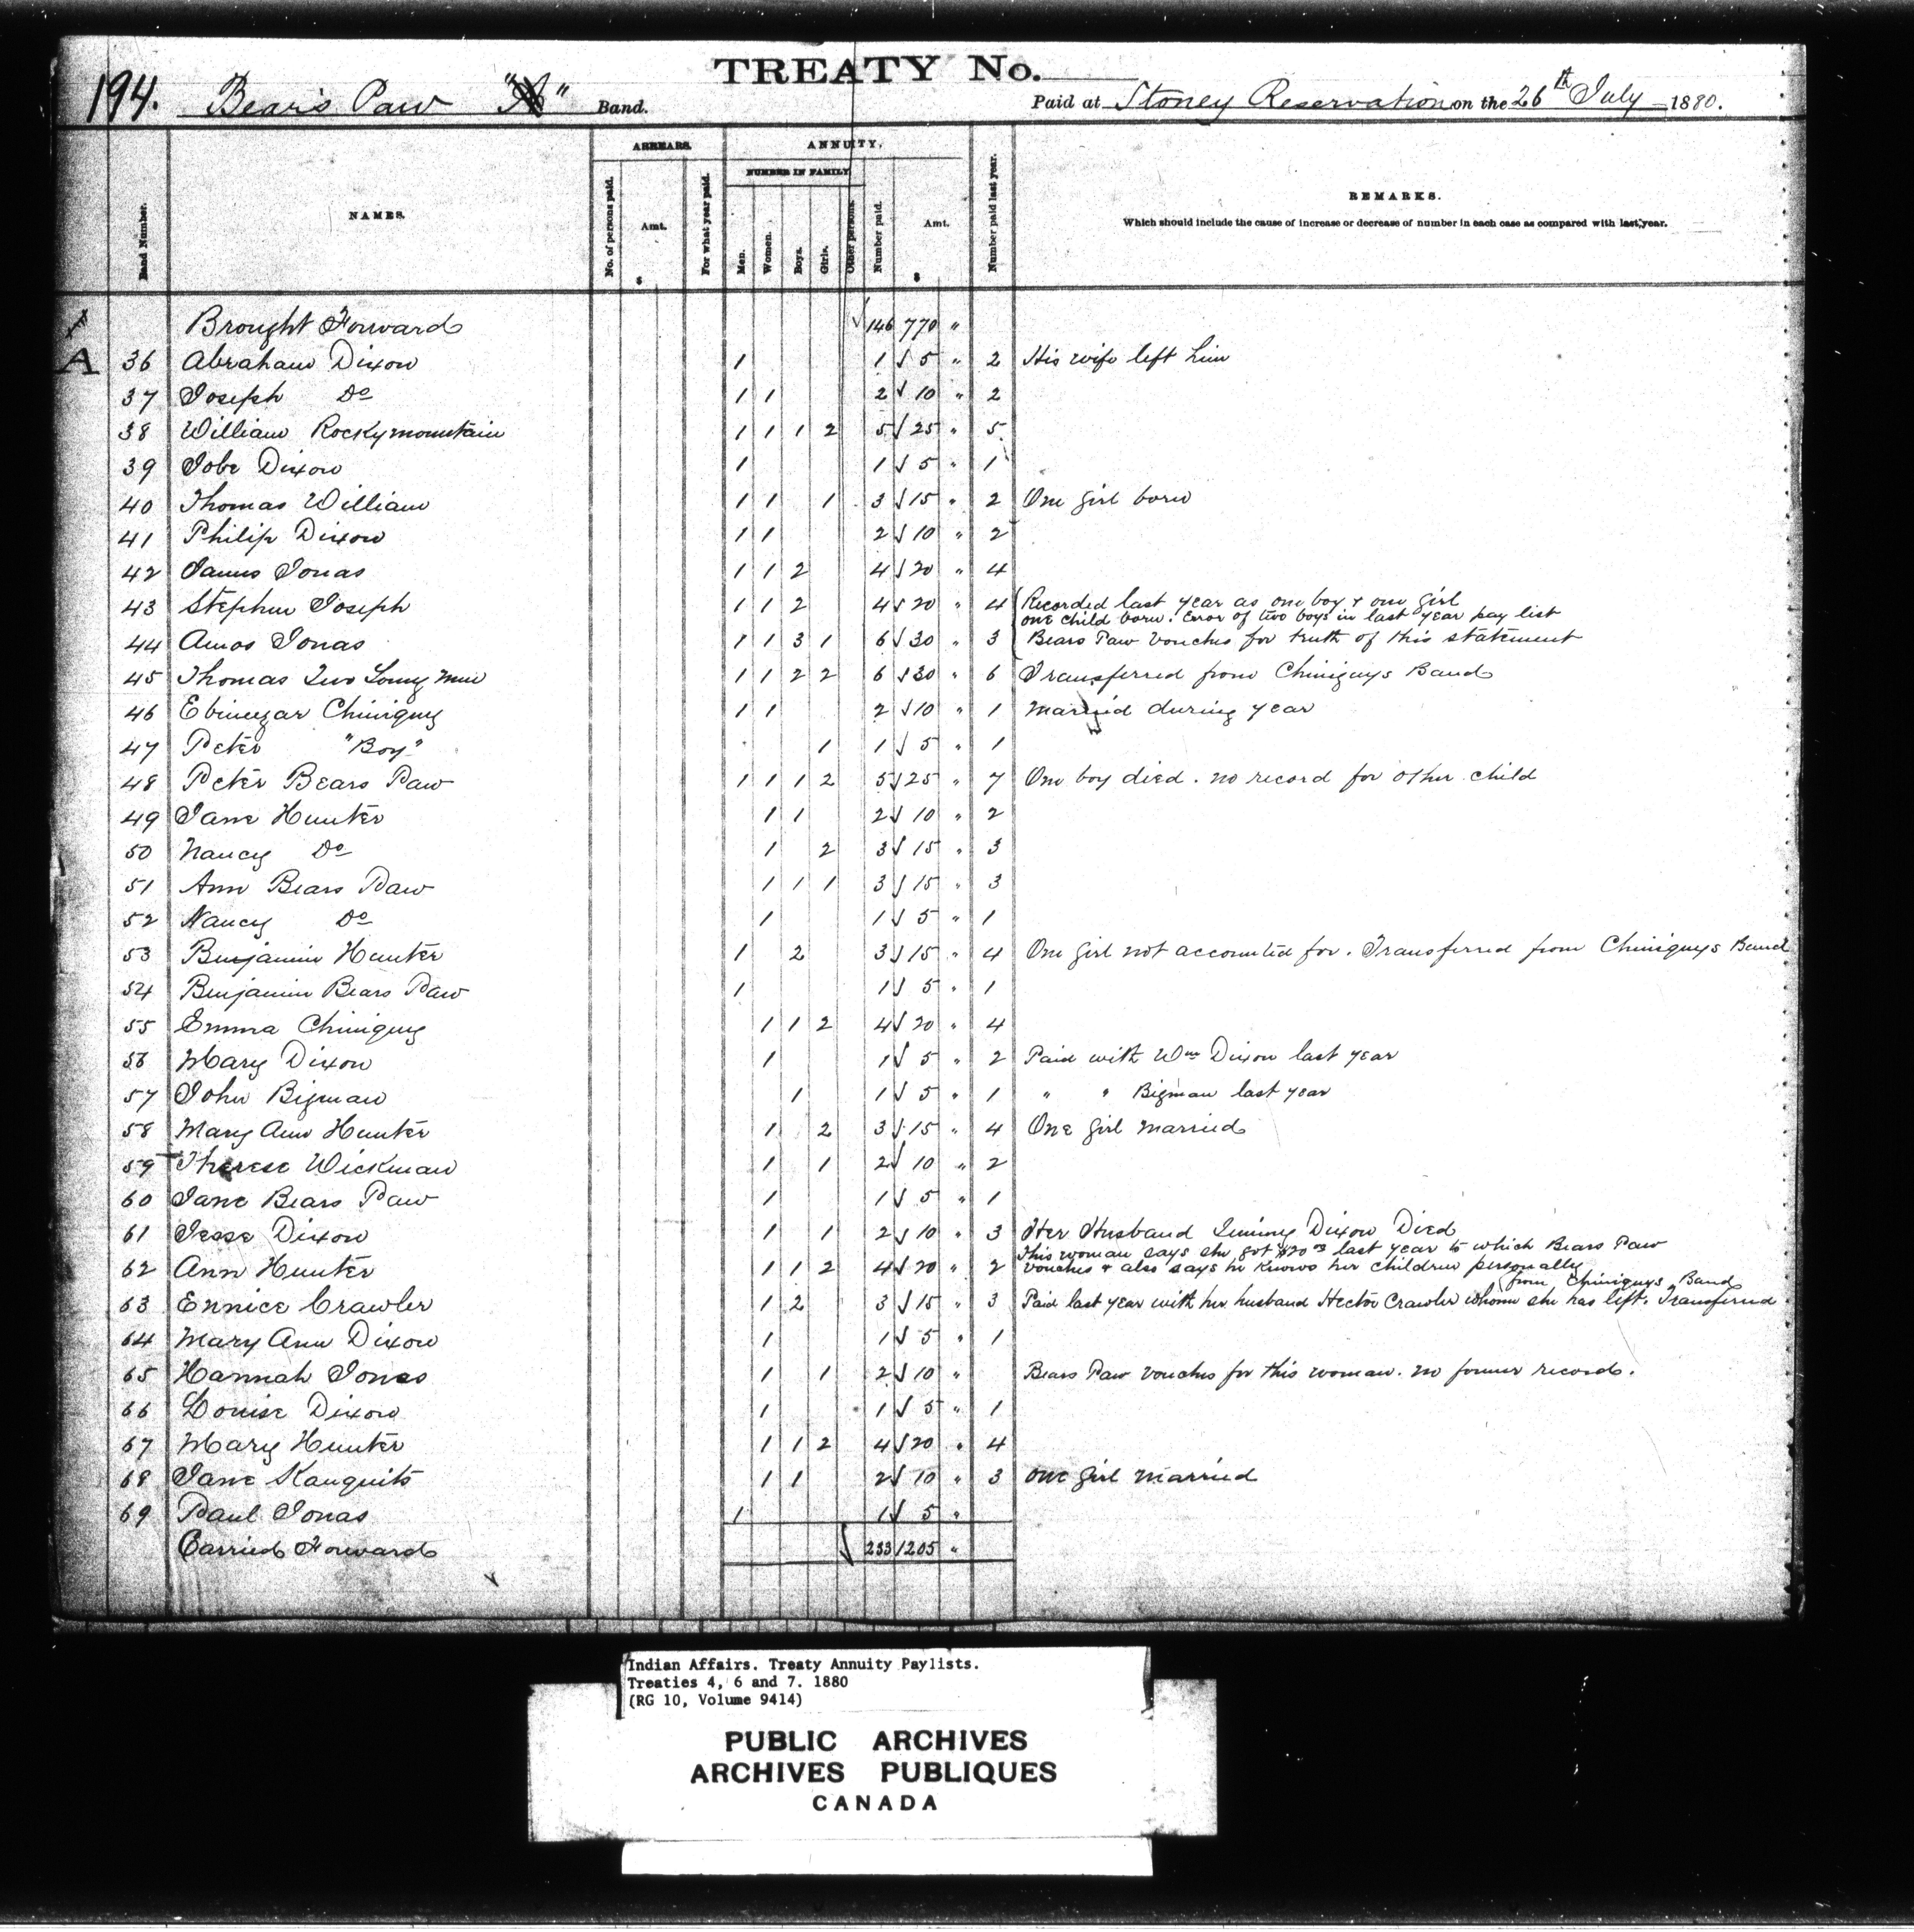 TREATY No.
194. Bear's Paw "A" Band. Paid at Stoney Reservation on the 26th July 1880.
ARREARS. ANNUITY.
NUMBER IN FAMILY
Band Number. NAMES. No. of persons paid. Amt. $ For what year paid. Men. Women. Boys. Girls. Other persons. Number paid. Amt. $ Number paid last year. REMARKS.
Which should include the cause of increase or decrease of number in each case as compared with last year.
Brought Forward √ 146 770 "
A 36 Abraham Dixon 1 1 √ 5 " 2 His wife left him
37 Joseph Do 1 1 2 √ 10 " 2
38 William Rockymountain 1 1 1 2 5 √ 25 " 5
39 Jobe Dixon 1 1 √ 5 " 1
40 Thomas William 1 1 1 3 √ 15 " 2 One girl born
41 Philip Dixon 1 1 2 √ 10 " 2
42 James Jonas 1 1 2 4 √ 20 " 4
43 Stephen Joseph 1 1 2 4 √ 20 " 4 Recorded last year as one boy & one girl
one child born. Error of two boys in last year pay list
44 Amos Jonas 1 1 3 1 6 √ 30 " 3 Bears Paw vouches for truth of this statement
45 Thomas Two Young Men 1 1 2 2 6 √ 30 " 6 Transferred from Chiniquys Band
46 Ebinezar Chiniquy 1 1 2 √ 10 " 1 Married during year
47 Peter "Boy" 1 1 √ 5 " 1
48 Peter Bears Paw 1 1 1 2 5 √ 25 " 7 One boy died. no record for other child
49 Jane Hunter 1 1 2 √ 10 " 2
50 Nancy Do 1 2 3 √ 15 " 3
51 Ann Bears Paw 1 1 1 3 √ 15 " 3
52 Nancy Do 1 1 √ 5 " 1
53 Benjamin Hunter 1 2 3 √ 15 " 4 One girl not accounted for. Transferred from Chiniquys Band
54 Benjamin Bears Paw 1 1 √ 5 " 1
55 Emma Chiniquy 1 1 2 4 √ 20 " 4
56 Mary Dixon 1 1 √ 5 " 2 Paid with Wm Dixon last year
57 John Bigman 1 1 √ 5 " 1 " " Bigman last year
58 Mary Ann Hunter 1 2 3 √ 15 " 4 One girl married
59 Therese Wickman 1 1 2 √ 10 " 2
60 Jane Bears Paw 1 1 √ 5 " 1
61 Jesse Dixon 1 1 2 √ 10 " 3 Her Husband Jimmy Dixon Died
This woman says she got $20 00 last year to which Bears Paw
62 Ann Hunter 1 1 2 4 √ 20 " 2 vouches & also says he knows her children personally
from Chiniquys Band
63 Ennice Crawler 1 2 3 √ 15 " 3 Paid last year with her husband Hector Crawler whom she has left. Transferred
64 Mary Ann Dixon 1 1 √ 5 " 1
65 Hannah Jones 1 1 2 √ 10 " Bears Paw vouches for this woman. no former record.
66 Louise Dixon 1 1 √ 5 " 1
67 Mary Hunter 1 1 2 4 √ 20 " 4
68 Jane Kauquits 1 1 2 √ 10 " 3 one girl married
69 Paul Jonas 1 1 √ 5 "
Carried Forward √ 233 1205 "
Indian Affairs. Treaty Annuity Paylists.
Treaties 4, 6 and 7. 1880
(RG 10, Volume 9414)
PUBLIC ARCHIVES
ARCHIVES PUBLIQUES
CANADA